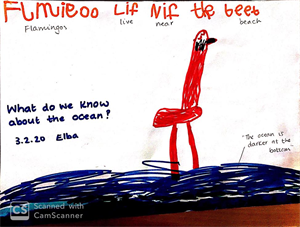 Flmieoo Lif Nif the beet
Flamingos live near beach
What do we know
about the ocean?
3.2.20 Elba
"The ocean is
darker at the
bottom"
CS Scanned with
CamScanner